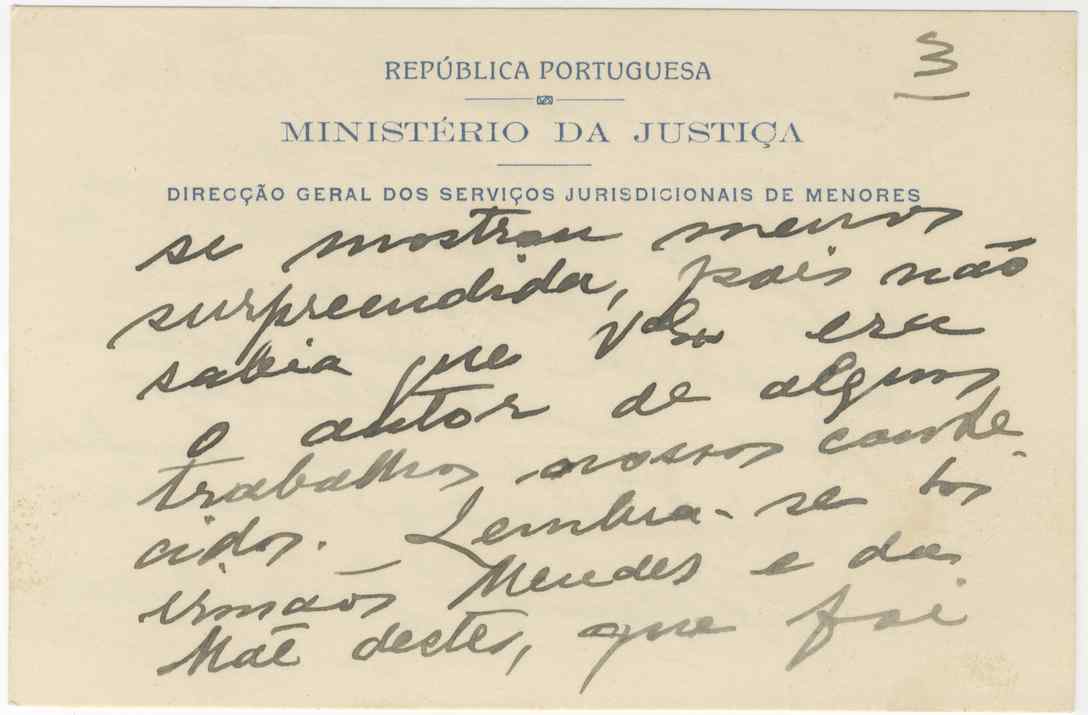 3
REPÚBLICA PORTUGUESA
MINISTÉRIO DA JUSTIÇA
DIRECÇÃO GERAL DOS SERVIÇOS JURISDICIONAIS DE MENORES
se mostrou menos
surpreendida, pois não
sabia que era
o autor de alguns
trabalhos nossos conhe-
cidos. Lembra-se dos
irmãos Mendes e da
Mãe destes, que foi